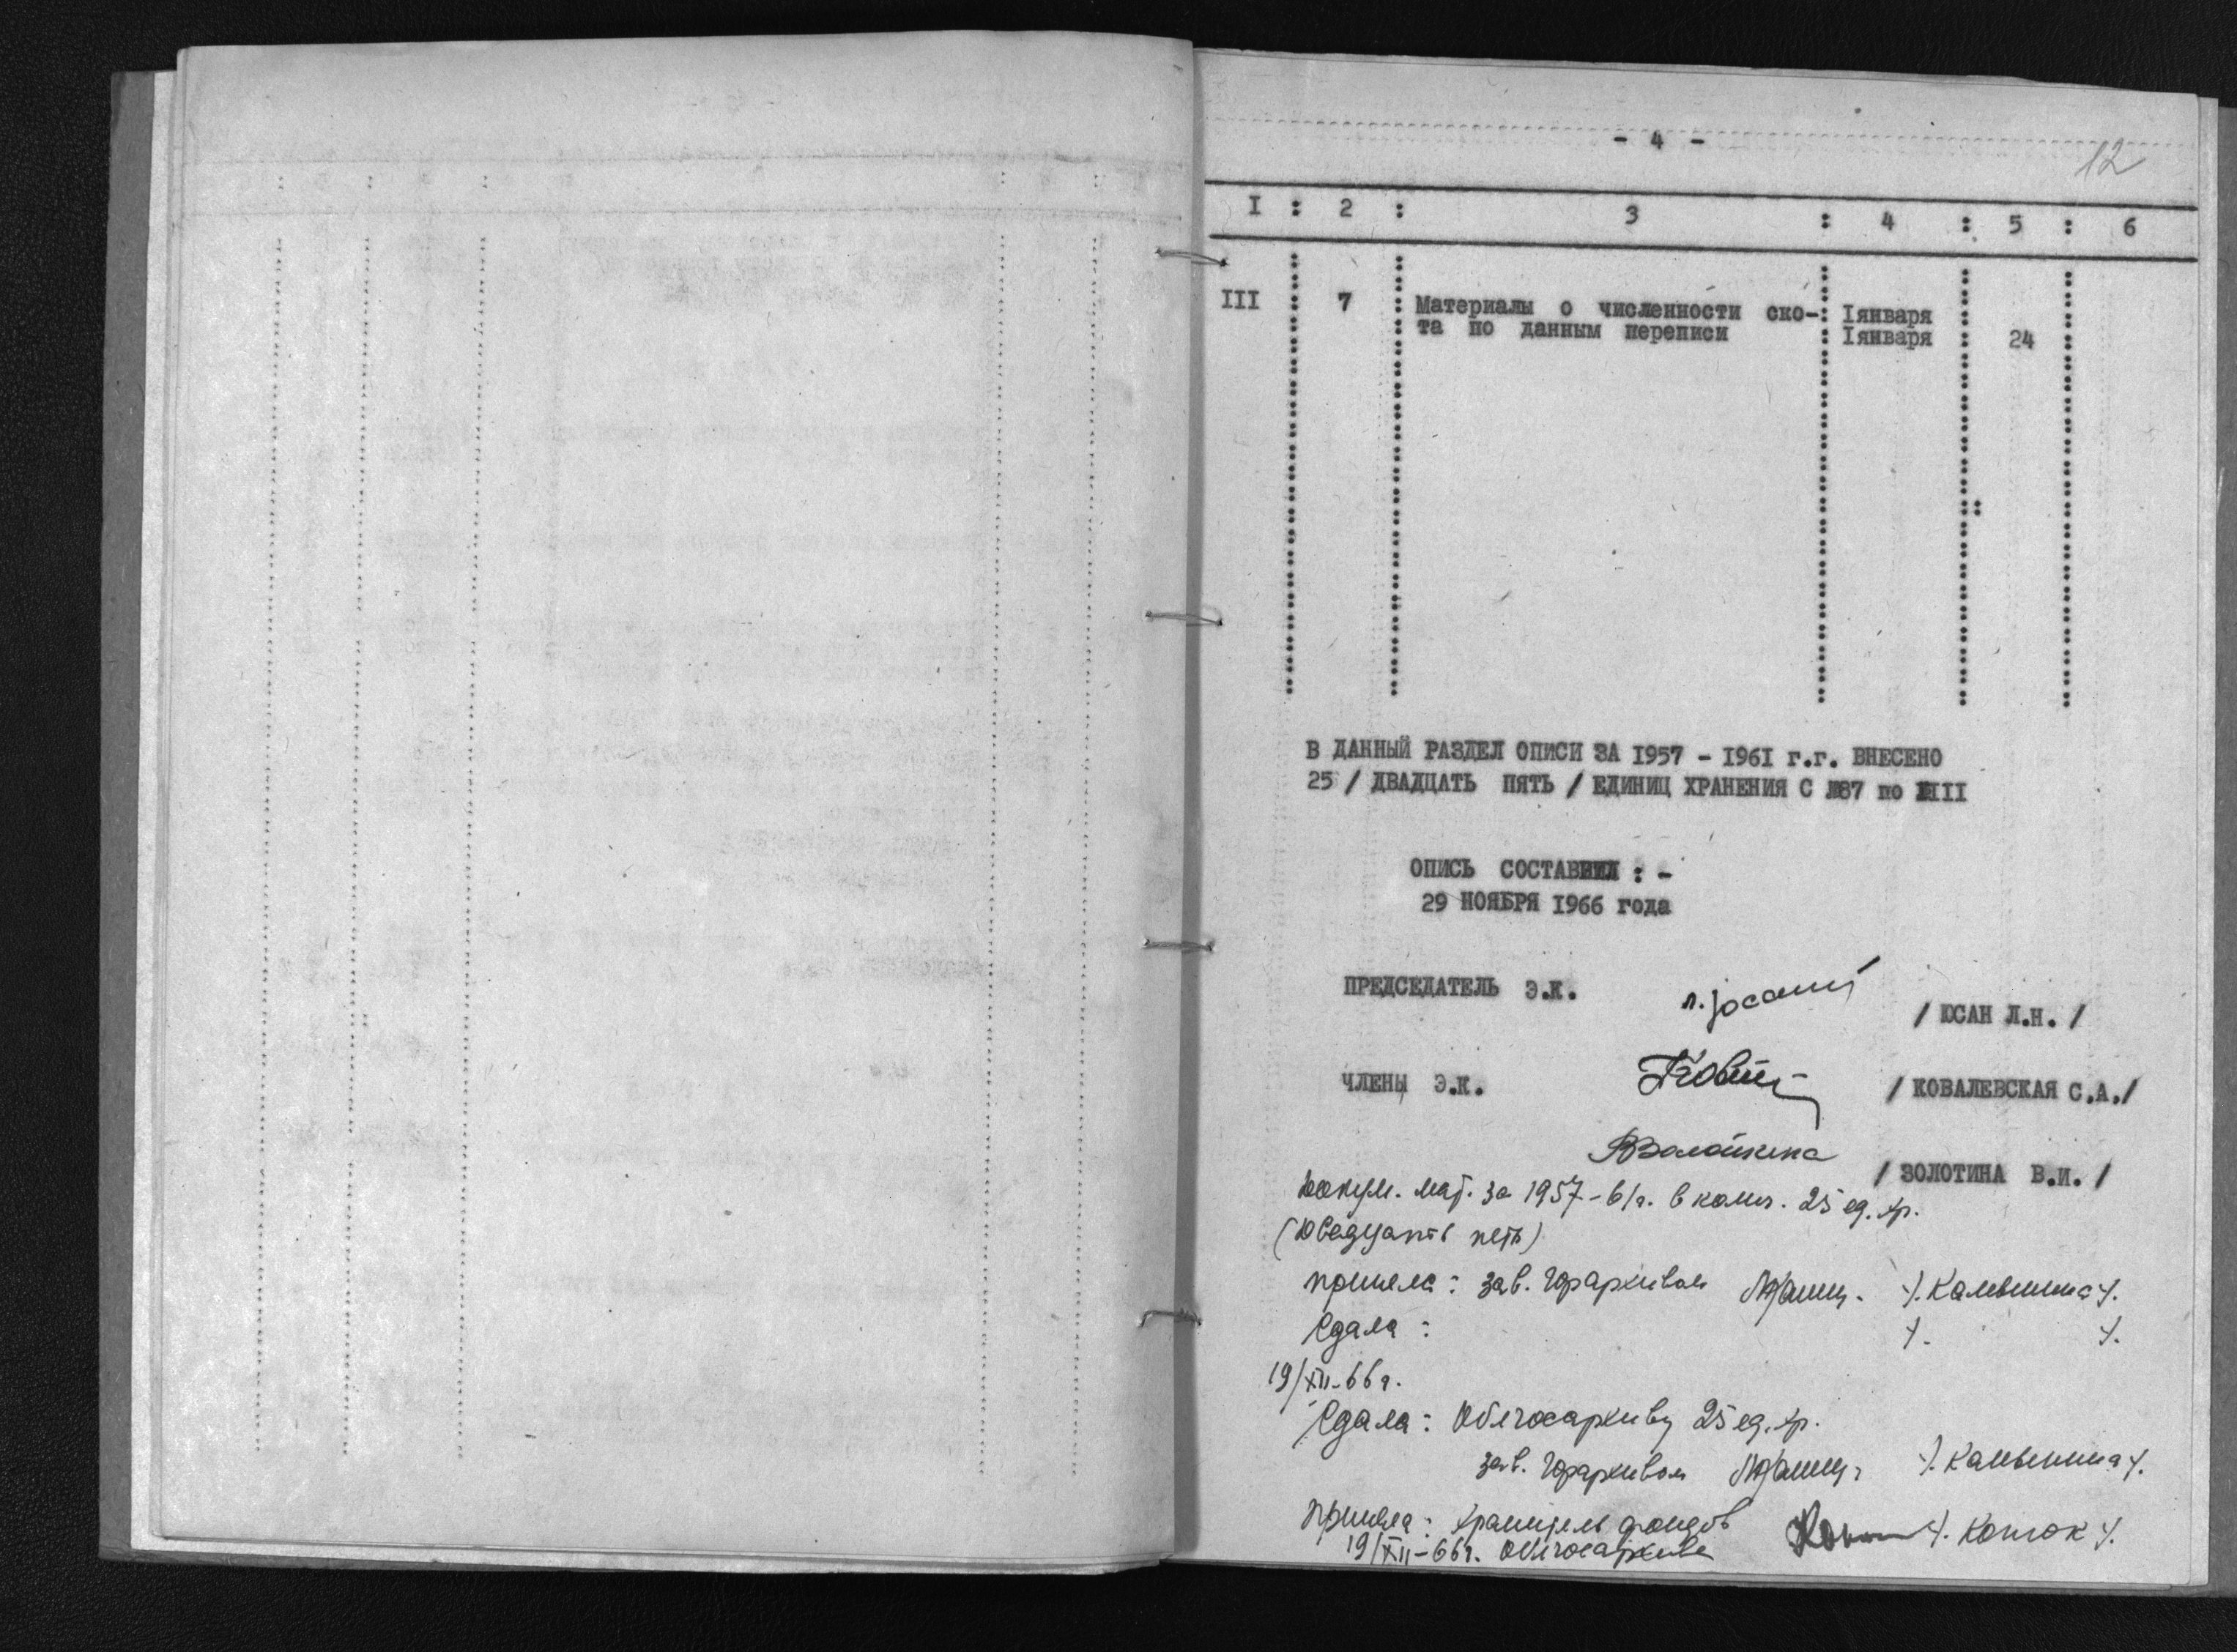 - 4 -
12
I : 2 : 3 : 4 : 5 : 6
III 7 Материалы о численности ско- Iянваря
та по данным переписи Iянваря 24
В ДАННЫЙ РАЗДЕЛ ОПИСИ ЗА I957 - I96I г.г. ВНЕСЕНО
25 / ДВАДЦАТЬ ПЯТЬ / ЕДИНИЦ ХРАНЕНИЯ С №87 по №III
ОПИСЬ СОСТАВИЛ : -
29 НОЯБРЯ I966 года
ПРЕДСЕДАТЕЛЬ Э.К. / ЮСАН Л.Н. /
ЧЛЕНЫ Э.К. / КОВАЛЕВСКАЯ С.А./
/ ЗОЛОТИНА В.И. /
Докум. мат. за 1957-61г. в колич. 25 ед. хр.
(Двадцать пять)
Приняла: зав. Горархивом
Сдала:
19/XII-66г.
Сдала: Облгосархиву 25 ед. хр.
зав. Горархивом
Приняла: хранитель фондов
19/XII-66г. Облгосархива